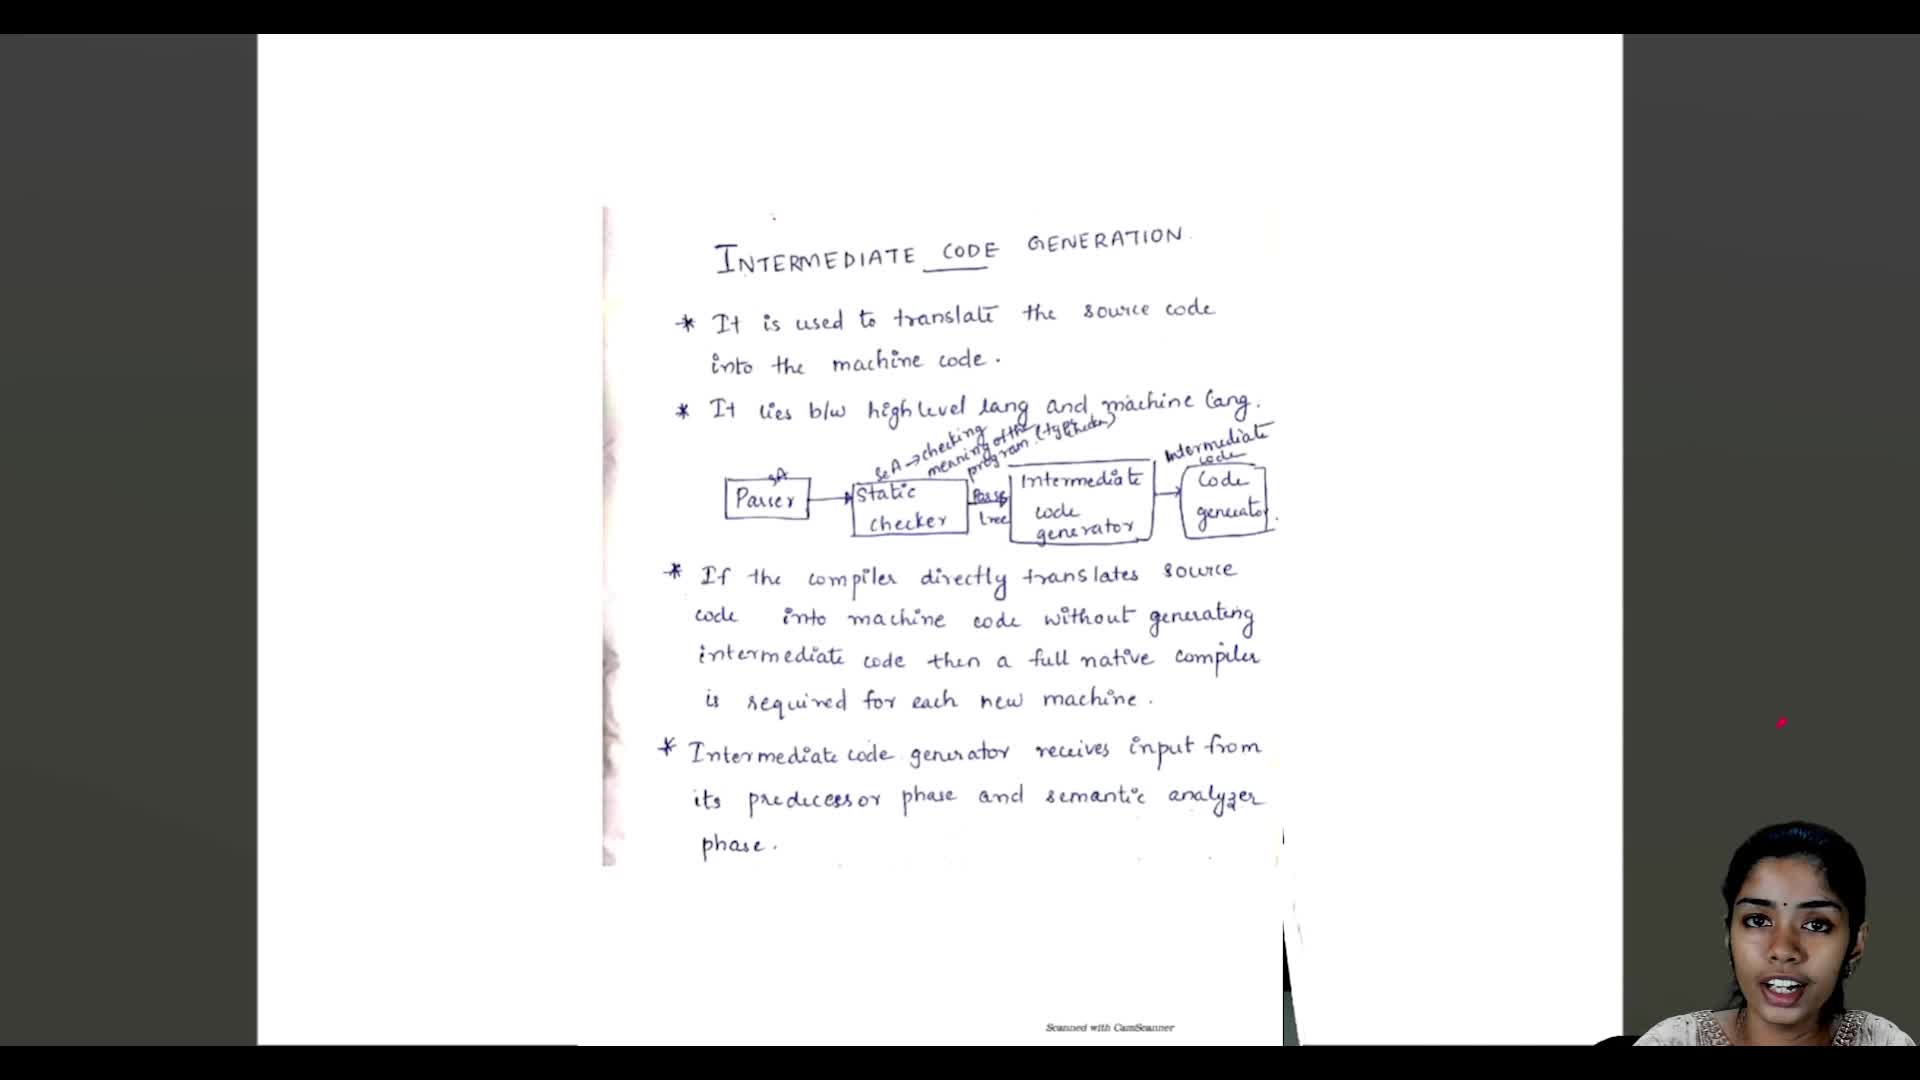 INTERMEDIATE CODE GENERATION.
* It is used to translate the source code
into the machine code.
* It lies b/w high level lang and machine lang.
SA
SeA → checking
meaning of the
program. (type checker)
Intermediate
code
Parser
Static
checker
Parse
tree
Intermediate
code
generator
Code
generator.
* If the compiler directly translates source
code into machine code without generating
intermediate code then a full native compiler
is required for each new machine.
* Intermediate code generator receives input from
its predecessor phase and semantic analyzer
phase.
Scanned with CamScanner